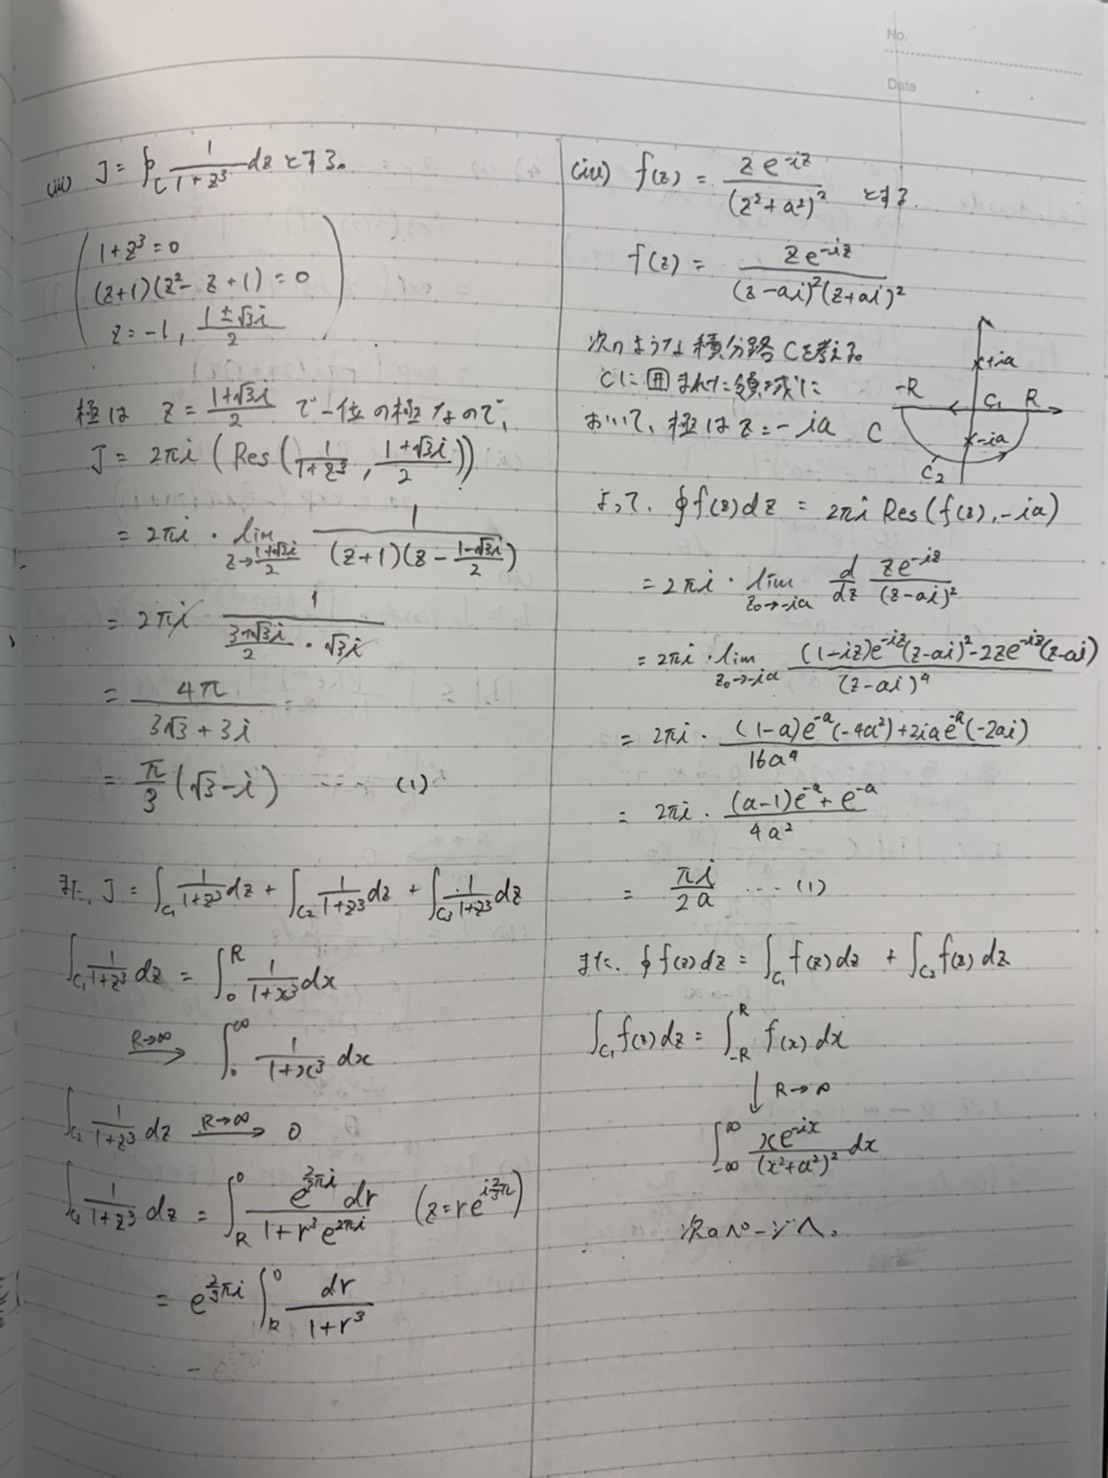 No.
Date
(iii) J = ∮_C 1/(1+z³) dz とする。
1+z³=0
(z+1)(z²-z+1)=0
z=-1, (1±√3i)/2
極は z=(1+√3i)/2 で一位の極なので、
J = 2πi (Res(1/(1+z³), (1+√3i)/2))
= 2πi · lim_{z→(1+√3i)/2} 1/((z+1)(z-(1-√3i)/2))
= 2πi · 1/((3+√3i)/2 · √3i)
= 4π/(3√3+3i)
= π/3 (√3-i) ‥‥ (1)
また、J = ∫_{C₁} 1/(1+z³) dz + ∫_{C₂} 1/(1+z³) dz + ∫_{C₃} 1/(1+z³) dz
∫_{C₁} 1/(1+z³) dz = ∫_0^R 1/(1+x³) dx
R→∞ → ∫_0^∞ 1/(1+x³) dx
∫_{C₂} 1/(1+z³) dz R→∞ → 0
∫_{C₃} 1/(1+z³) dz = ∫_R^0 e^{2/3πi} dr/(1+r³e^{2πi}) (z=re^{i2/3π})
= e^{2/3πi} ∫_R^0 dr/(1+r³)
(iv) f(z) = ze^{-iz}/(z²+a²)² とする
f(z) = ze^{-iz}/((z-ai)²(z+ai)²)
次のような積分路Cを考える。
Cに囲まれた領域に
おいて、極は z=-ia
+ia
-R C₁ R
C -ia
C₂
よって、∮f(z)dz = 2πi Res(f(z), -ia)
= 2πi · lim_{z₀→-ia} d/dz ze^{-iz}/(z-ai)²
= 2πi · lim_{z₀→-ia} ((1-iz)e^{-iz}(z-ai)²-2ze^{-iz}(z-ai))/(z-ai)⁴
= 2πi · ((1-a)e^{-a}(-4a²)+2iae^{-a}(-2ai))/16a⁴
= 2πi · ((a-1)e^{-a}+e^{-a})/4a²
= πi/2a ‥‥ (1)
また、∮f(z)dz = ∫_{C₁} f(z)dz + ∫_{C₂} f(z)dz
∫_{C₁} f(z)dz = ∫_{-R}^R f(x)dx
↓ R→∞
∫_{-∞}^∞ xe^{-ix}/(x²+a²)² dx
次のページへ。